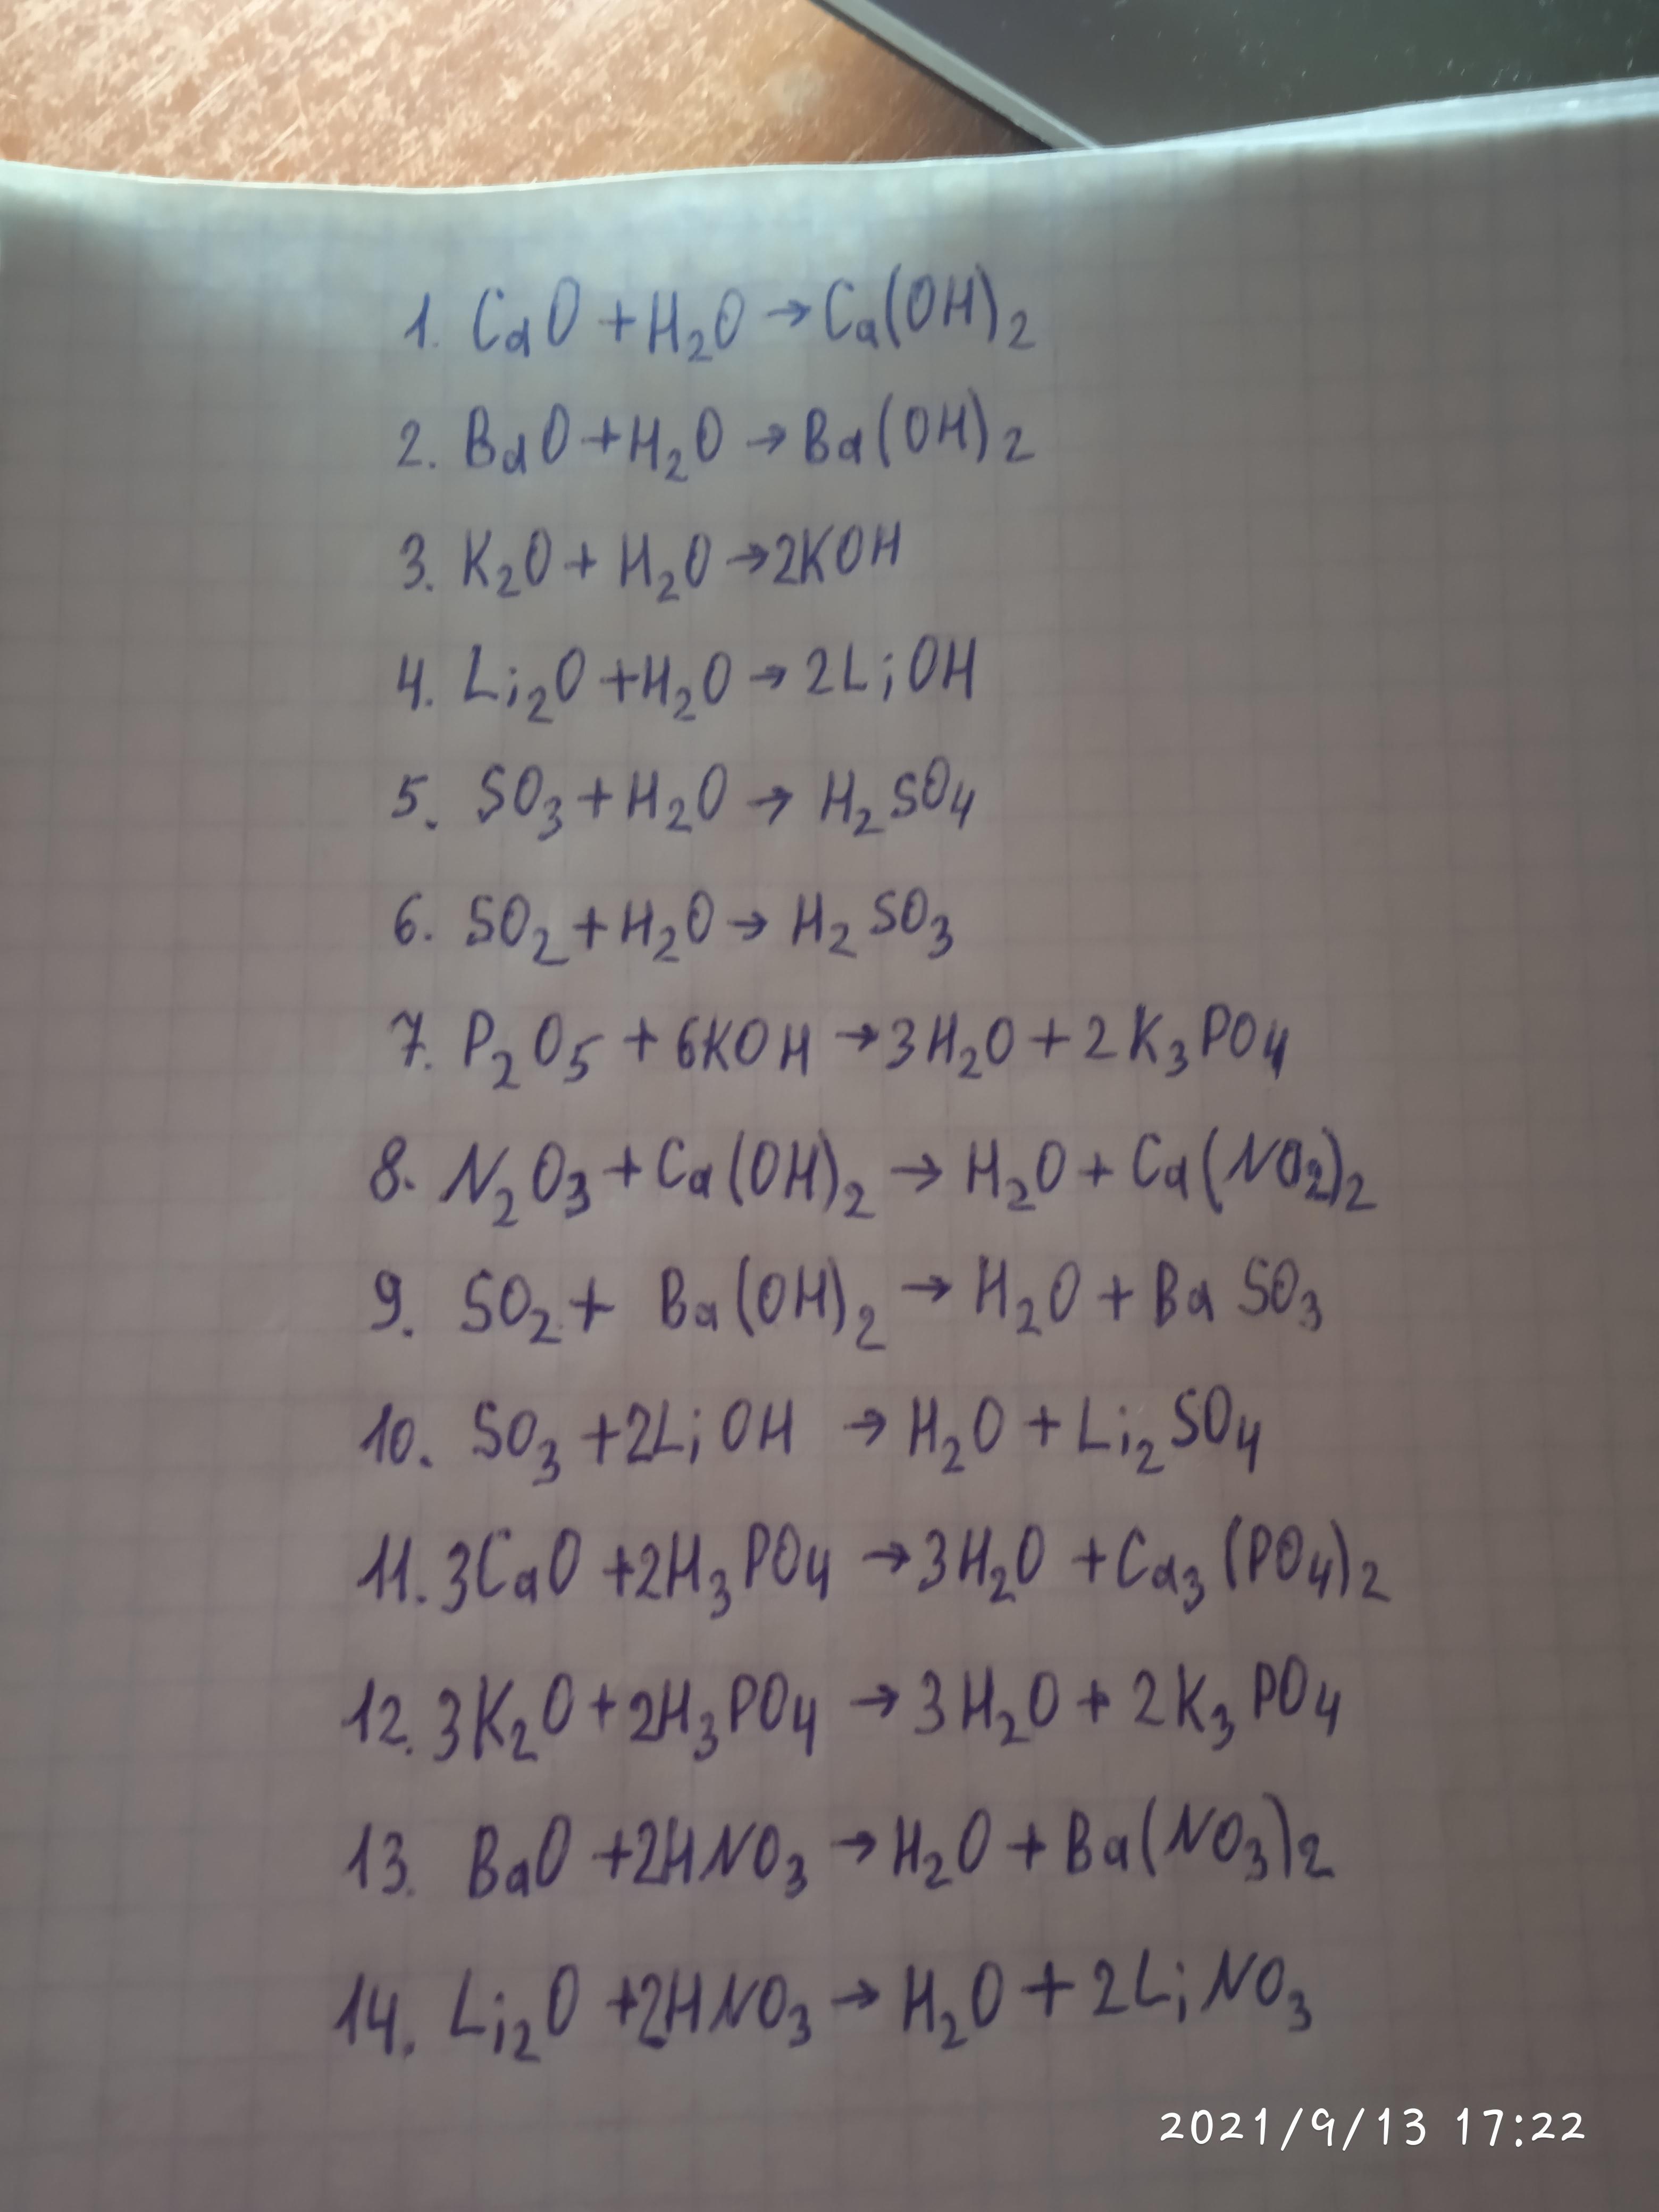 1. CaO + H₂O → Ca(OH)₂
2. BaO + H₂O → Ba(OH)₂
3. K₂O + H₂O → 2KOH
4. Li₂O + H₂O → 2LiOH
5. SO₃ + H₂O → H₂SO₄
6. SO₂ + H₂O → H₂SO₃
7. P₂O₅ + 6KOH → 3H₂O + 2K₃PO₄
8. N₂O₃ + Ca(OH)₂ → H₂O + Ca(NO₂)₂
9. SO₂ + Ba(OH)₂ → H₂O + BaSO₃
10. SO₃ + 2LiOH → H₂O + Li₂SO₄
11. 3CaO + 2H₃PO₄ → 3H₂O + Ca₃(PO₄)₂
12. 3K₂O + 2H₃PO₄ → 3H₂O + 2K₃PO₄
13. BaO + 2HNO₃ → H₂O + Ba(NO₃)₂
14. Li₂O + 2HNO₃ → H₂O + 2LiNO₃
2021/9/13 17:22